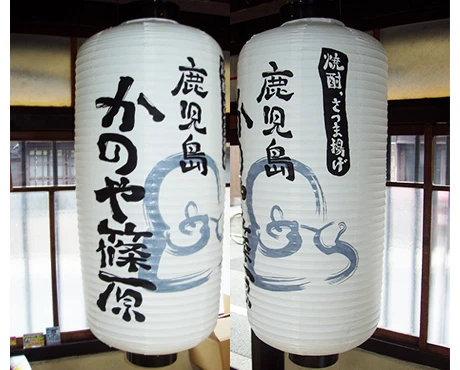 鹿児島
かのや篠原
焼酎、さつま揚げ
鹿児島